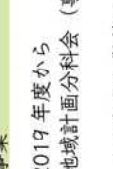 事業
2019 年度から
地域計画分科会（事